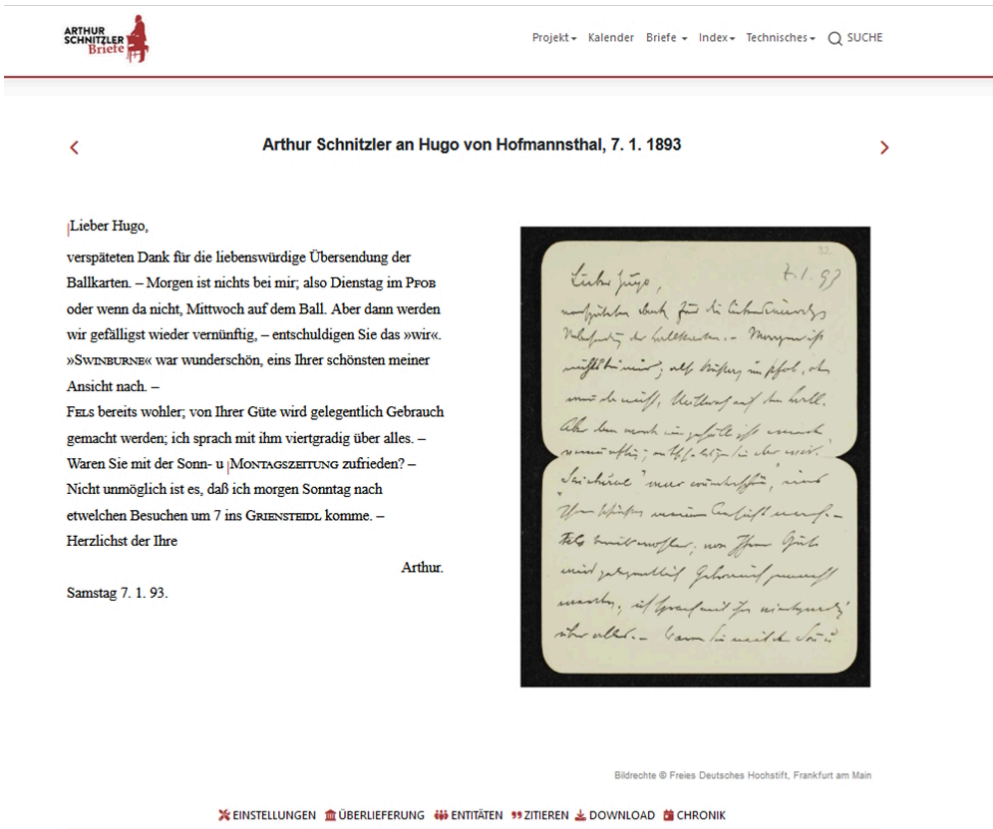 ARTHUR
SCHNITZLER
Briefe
Projekt Kalender Briefe Index Technisches SUCHE
Arthur Schnitzler an Hugo von Hofmannsthal, 7. 1. 1893
|Lieber Hugo,
verspäteten Dank für die liebenswürdige Übersendung der
Ballkarten. – Morgen ist nichts bei mir; also Dienstag im Pfob
oder wenn da nicht, Mittwoch auf dem Ball. Aber dann werden
wir gefälligst wieder vernünftig, – entschuldigen Sie das »wir«.
»Swinburne« war wunderschön, eins Ihrer schönsten meiner
Ansicht nach. –
Fels bereits wohler; von Ihrer Güte wird gelegentlich Gebrauch
gemacht werden; ich sprach mit ihm viertgradig über alles. –
Waren Sie mit der Sonn- u |Montagszeitung zufrieden? –
Nicht unmöglich ist es, daß ich morgen Sonntag nach
etwelchen Besuchen um 7 ins Griensteidl komme. –
Herzlichst der Ihre
Arthur.
Samstag 7. 1. 93.
32
7.1.93
Lieber Hugo,
verspäteten Dank für die liebenswürdige
Übersendung der Ballkarten. – Morgen ist
nichts bei mir; also Dienstag im Pfob, oder
wenn da nicht, Mittwoch auf dem Ball.
Aber dann werden wir gefälligst wieder
vernünftig; – entschuldigen Sie das wir.
"Swinburne" war wunderschön, eins
Ihrer schönsten meiner Ansicht nach. –
Fels bereits wohler; von Ihrer Güte
wird gelegentlich Gebrauch gemacht
werden; ich sprach mit ihm viertgradig
über alles. – Waren Sie mit der Sonn u
Bildrechte © Freies Deutsches Hochstift, Frankfurt am Main
EINSTELLUNGEN ÜBERLIEFERUNG ENTITÄTEN ZITIEREN DOWNLOAD CHRONIK